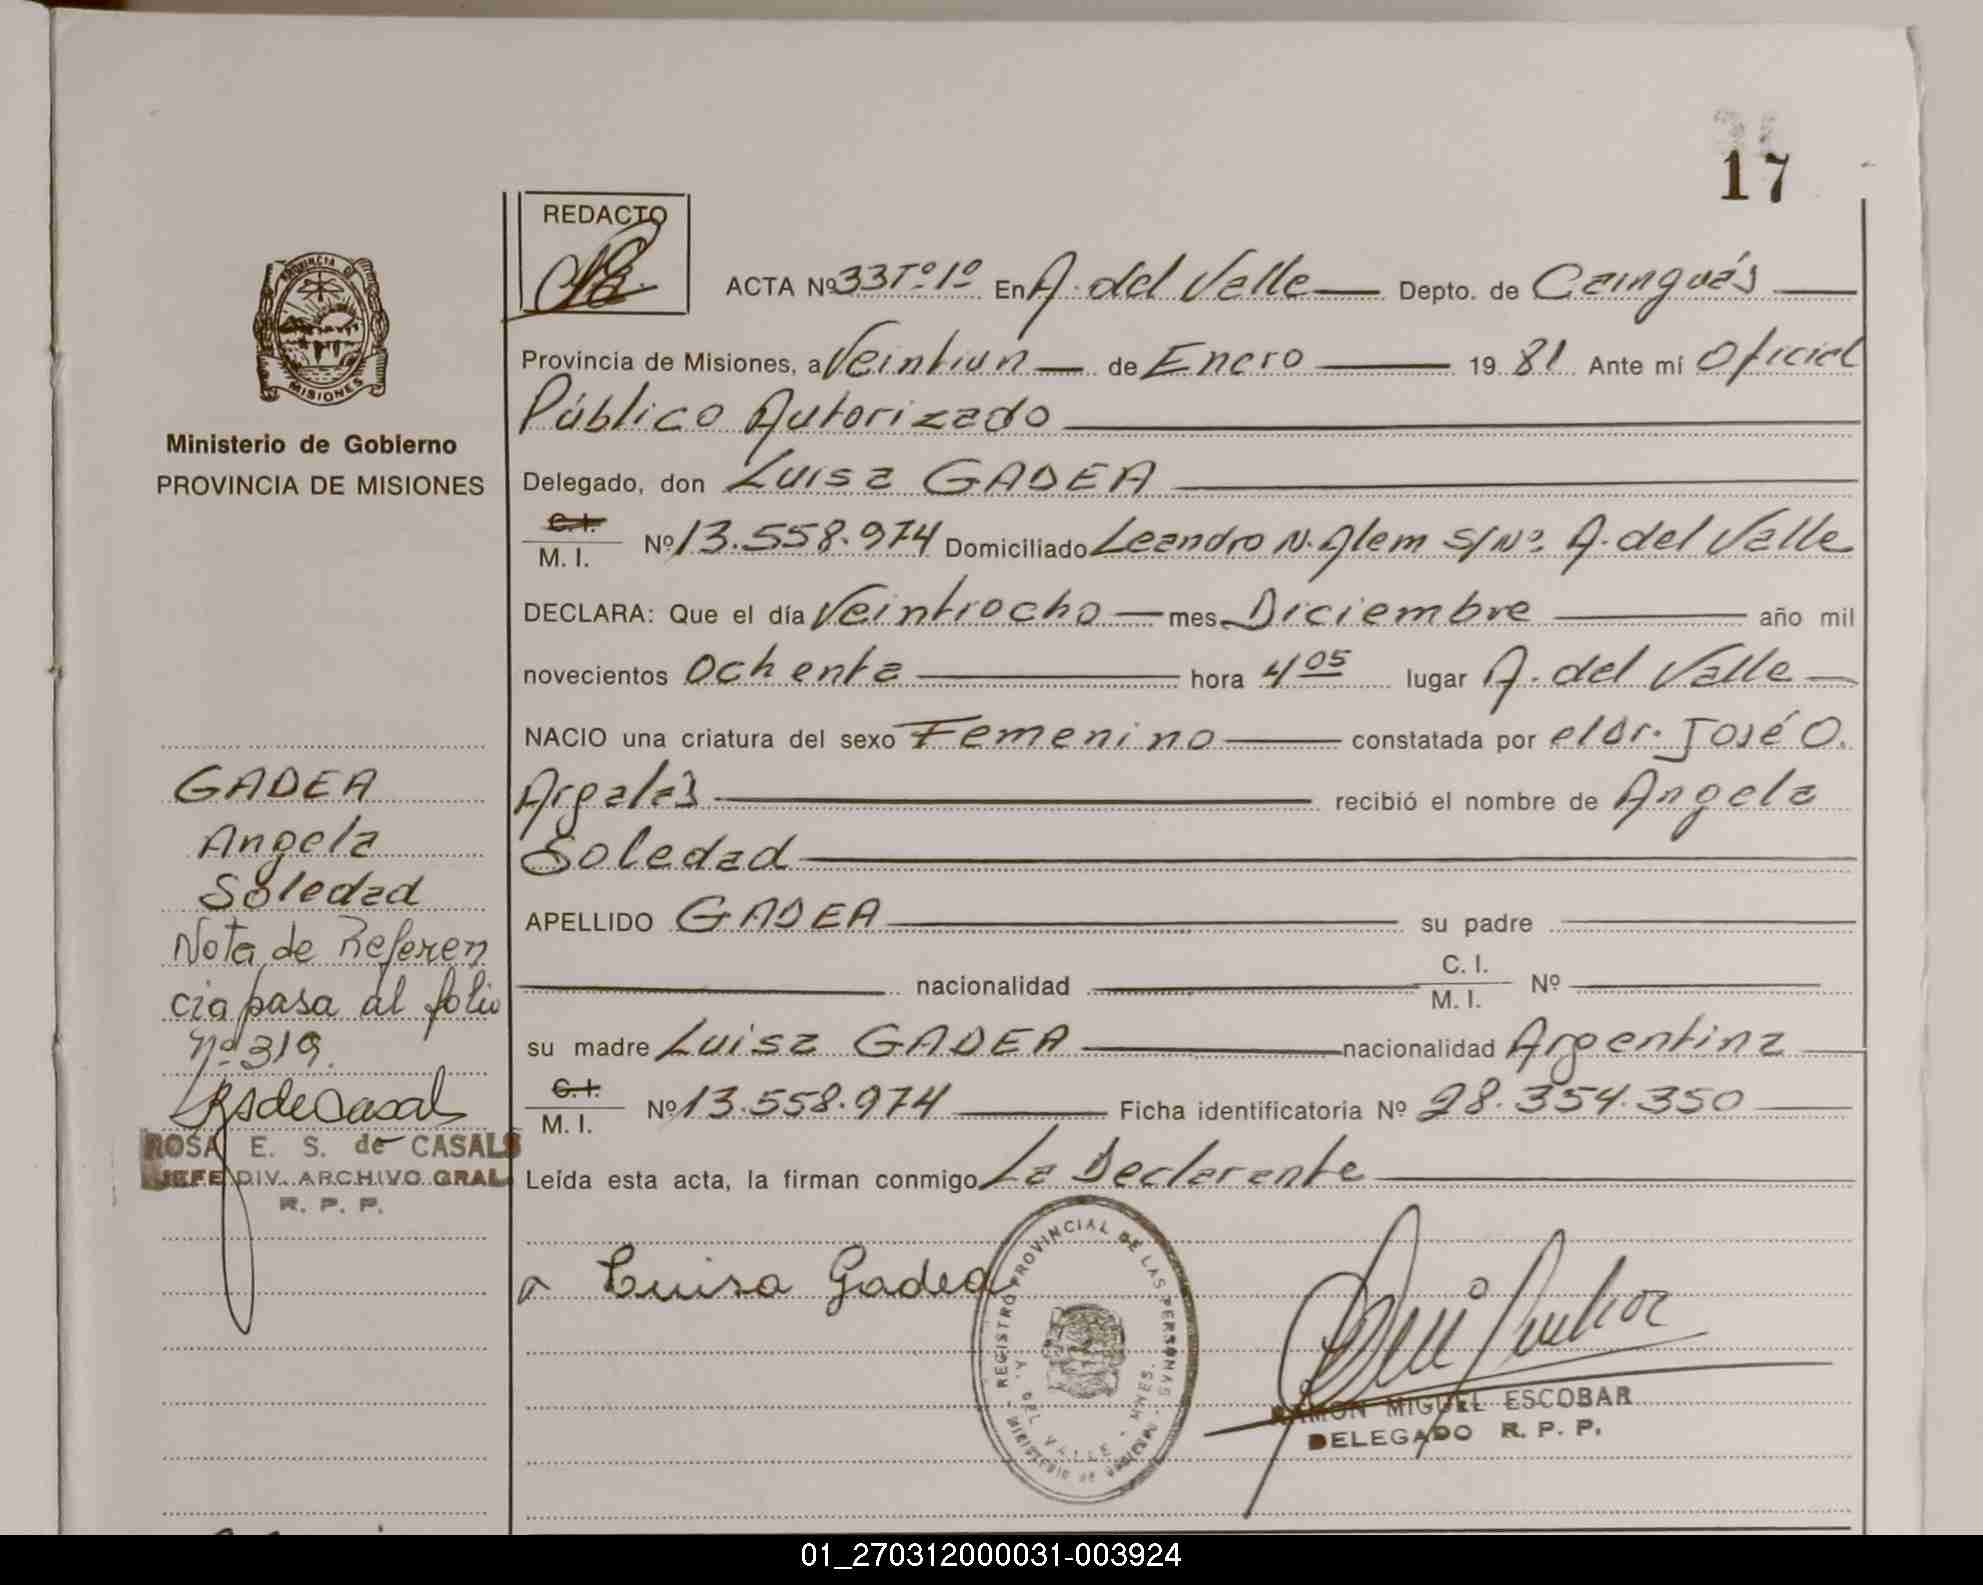 17
REDACTO
ACTA Nº 33 Tº. 1º En A. del Valle Depto. de Cainguás
Provincia de Misiones, a Veintiun de Enero 19 81 Ante mí Oficial
Público Autorizado
Delegado, don Luisa GADEA
C. I.
M. I. Nº 13.558.974 Domiciliado Leandro N. Alem S/Nº. A. del Valle
DECLARA: Que el día Veintiocho mes Diciembre año mil
novecientos Ochenta hora 4 05 lugar A. del Valle
NACIO una criatura del sexo Femenino constatada por el dr. José O.
Argalas recibió el nombre de Angela
Soledad
APELLIDO GADEA su padre
nacionalidad C. I. M. I. Nº
su madre Luisa GADEA nacionalidad Argentina
C. I.
M. I. Nº 13.558.974 Ficha identificatoria Nº 28.354.350
Leída esta acta, la firman conmigo La Declarante
Luisa Gadea
REGISTRO PROVINCIAL DE LAS PERSONAS
A. DEL VALLE - MNES.
MINISTERIO DE GOBIERNO
RAMON MIGUEL ESCOBAR
DELEGADO R. P. P.
PROVINCIA DE
MISIONES
Ministerio de Gobierno
PROVINCIA DE MISIONES
GADEA
Angela
Soledad
Nota de Referen
cia pasa al folio
Nº 319.
RSdeCasals
ROSA E. S. de CASALS
JEFE DIV. ARCHIVO GRAL
R. P. P.
01_270312000031-003924